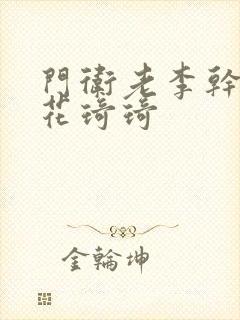 門衛老李幹
花琦琦
金輪坤